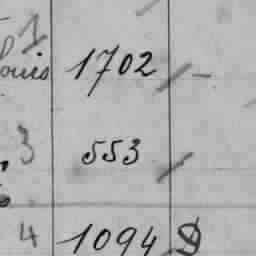 1
ouis 1702 -
3 553
4 1094 D